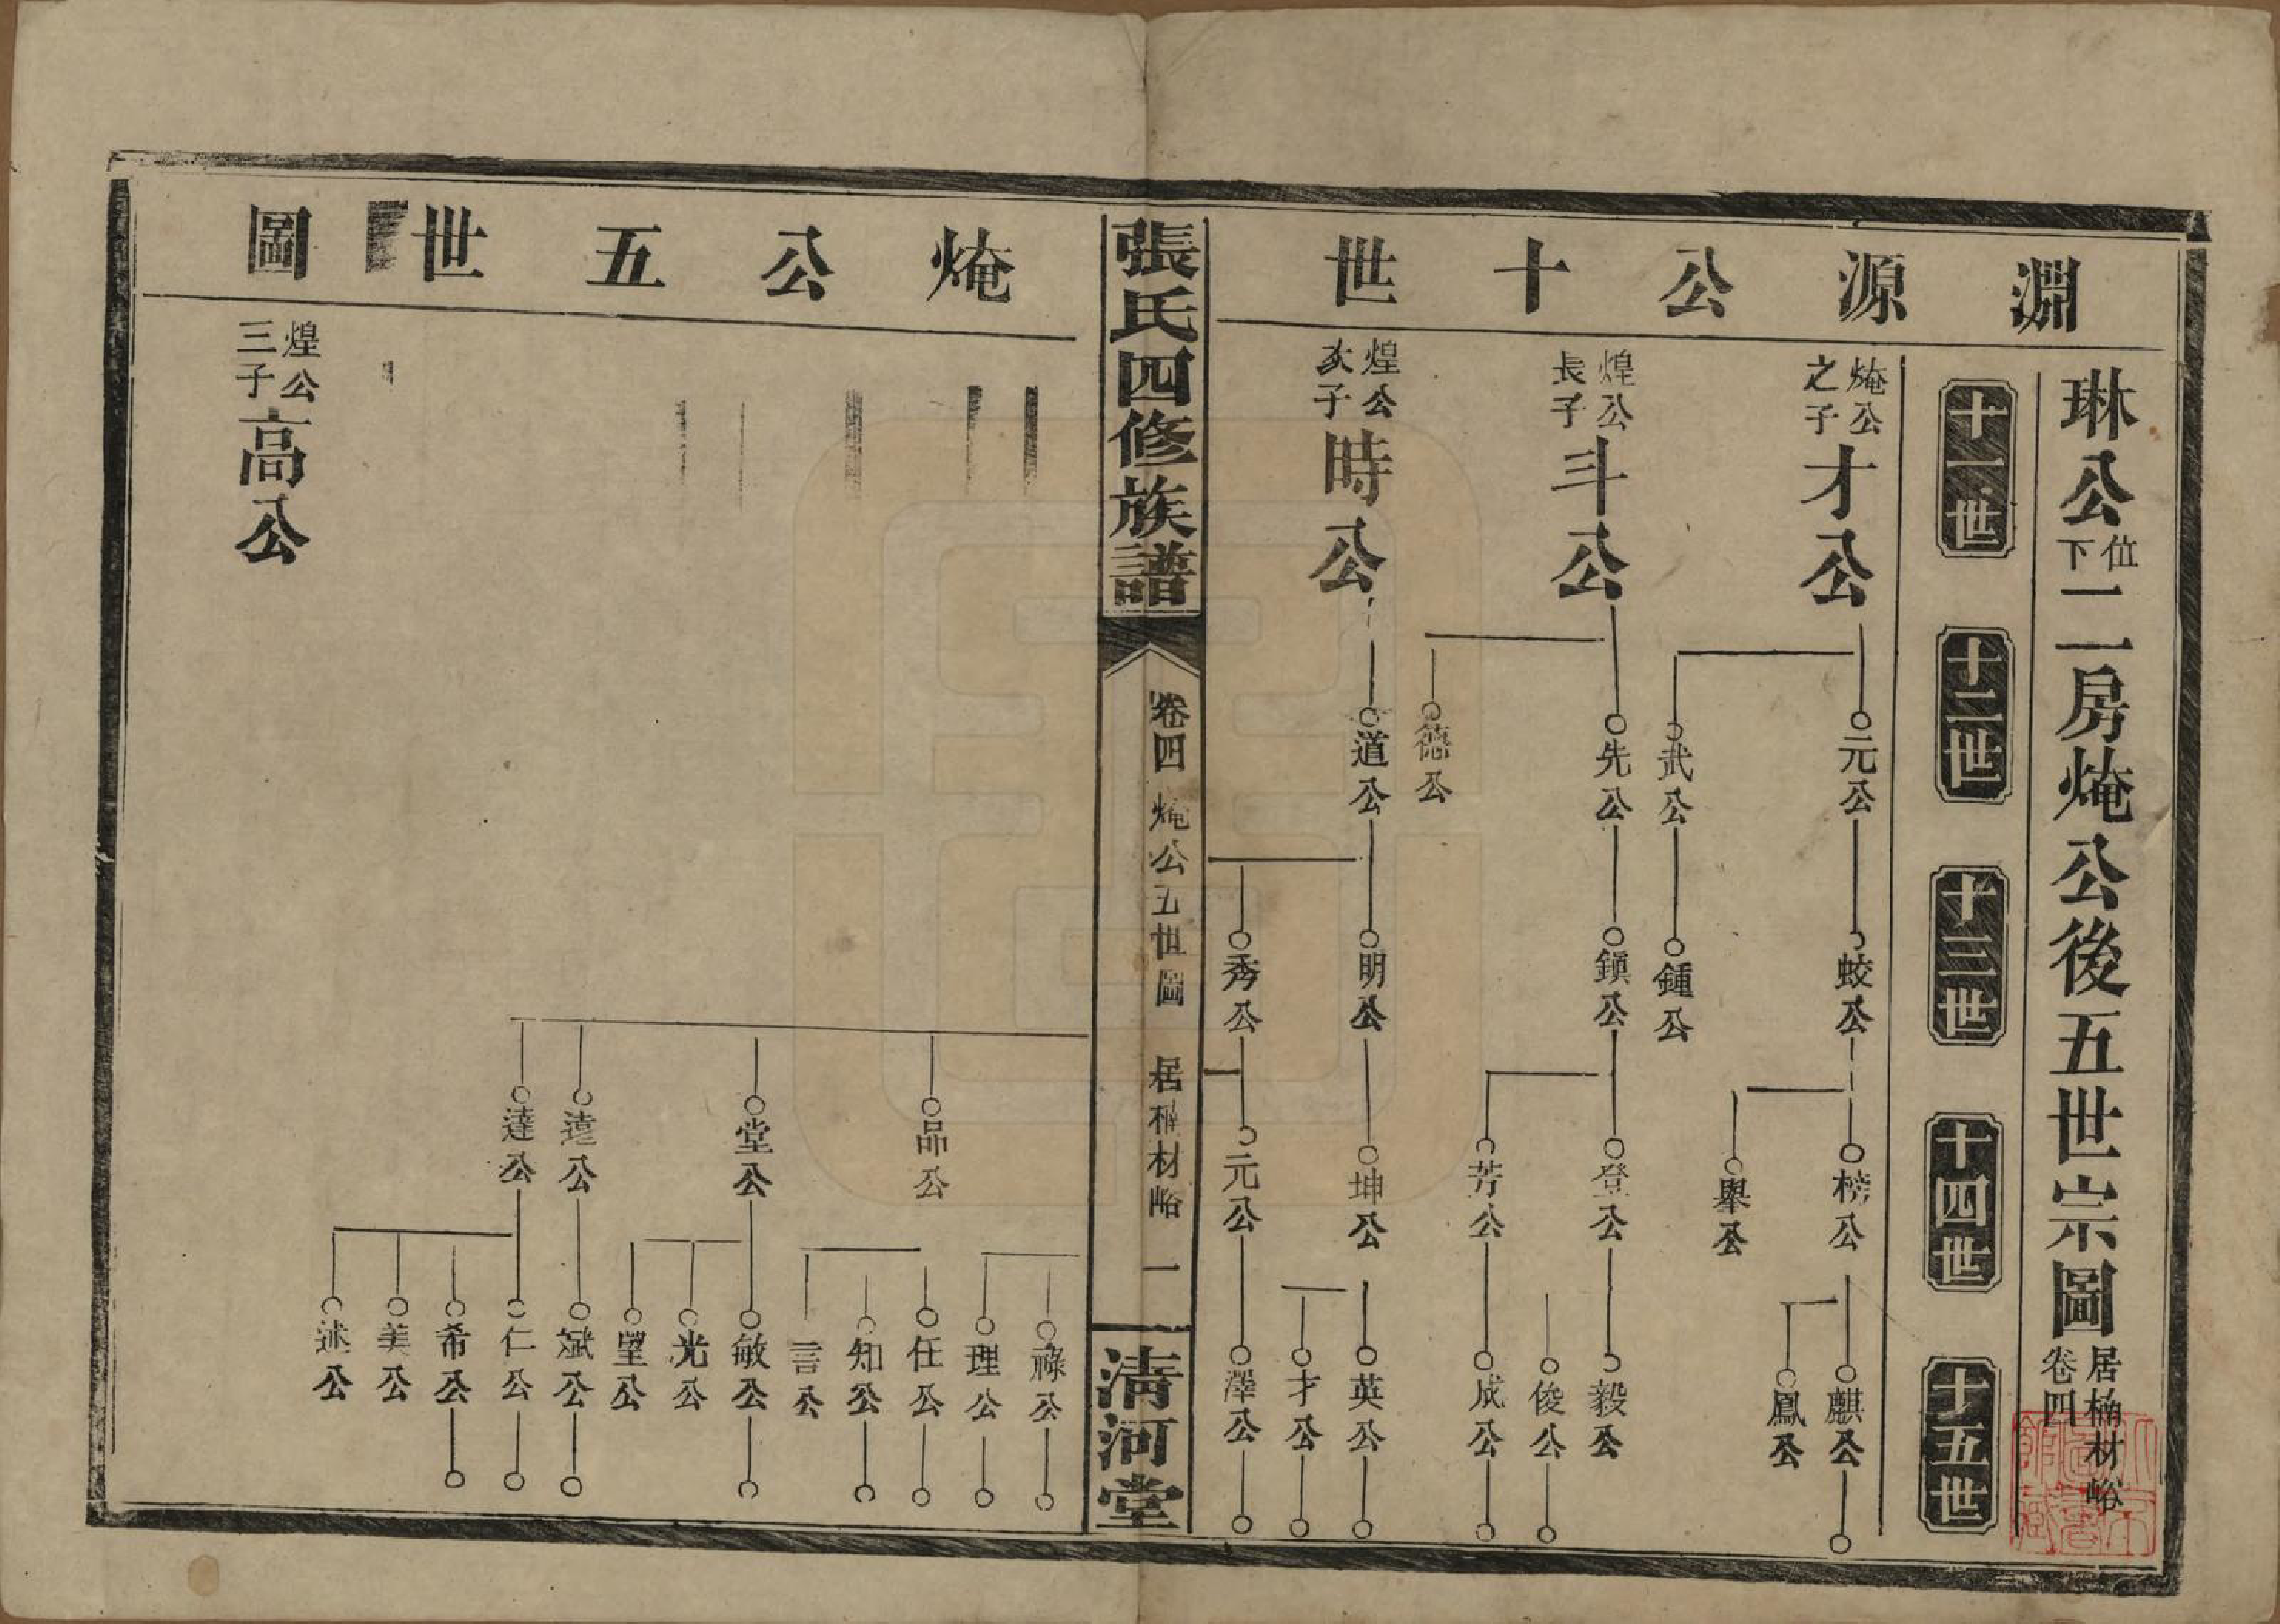 淵源公十世
琳公位下二房㷈公後五世宗圖 居楠材峪 卷四
十一世
十二世
十三世
十四世
十五世
㷈公之子才公
元公
蛟公
榜公
麒公
鳳公
舉公
武公
鍾公
煌公長子斗公
先公
鎮公
登公
毅公
俊公
芳公
成公
德公
煌公次子時公
道公
明公
坤公
英公
才公
秀公
元公
澤公
張氏四修族譜
卷四 㷈公五世圖 居楠材峪 一
清河堂
㷈公五世圖
祿公
理公
品公
任公
知公
言公
堂公
敏公
光公
望公
遠公
斌公
達公
仁公
希公
美公
述公
煌公三子高公